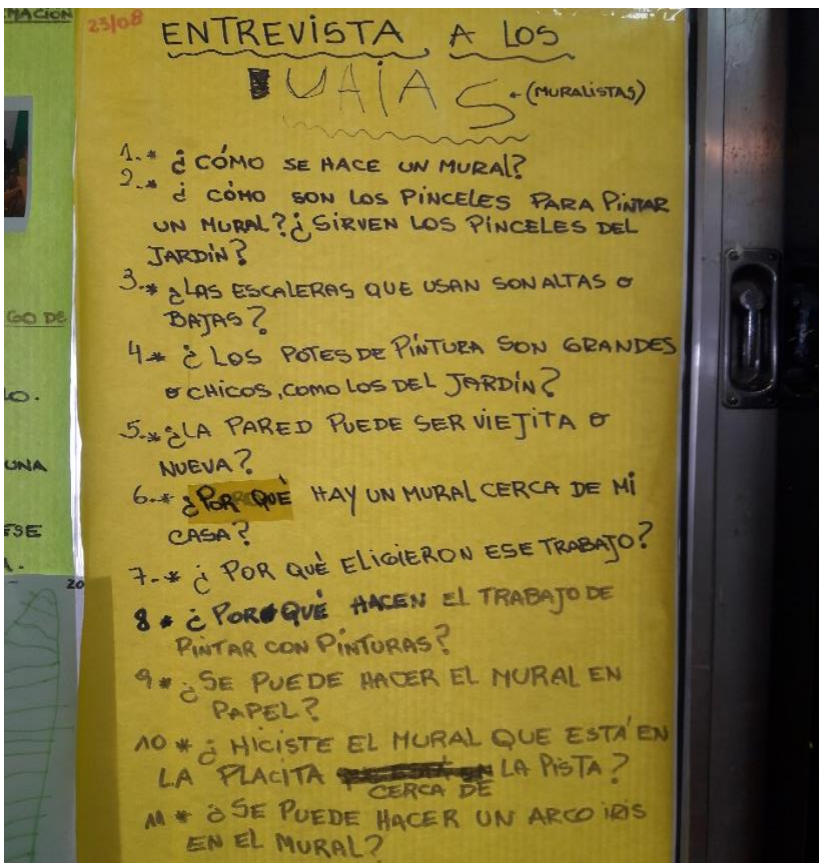 MACIÓN
GO DE
LO.
UNA
ESE
A.
20
23/08
ENTREVISTA A LOS
UAIAS (MURALISTAS)
1.* ¿CÓMO SE HACE UN MURAL?
2.* ¿CÓMO SON LOS PINCELES PARA PINTAR
UN MURAL? ¿SIRVEN LOS PINCELES DEL
JARDÍN?
3.* ¿LAS ESCALERAS QUE USAN SON ALTAS O
BAJAS?
4* ¿LOS POTES DE PINTURA SON GRANDES
O CHICOS, COMO LOS DEL JARDÍN?
5.* ¿LA PARED PUEDE SER VIEJITA O
NUEVA?
6.* ¿POR QUÉ HAY UN MURAL CERCA DE MI
CASA?
7.* ¿POR QUÉ ELIGIERON ESE TRABAJO?
8* ¿POR QUÉ HACEN EL TRABAJO DE
PINTAR CON PINTURAS?
9* ¿SE PUEDE HACER EL MURAL EN
PAPEL?
10* ¿HICISTE EL MURAL QUE ESTÁ EN
LA PLACITA CERCA DE LA PISTA?
11* ¿SE PUEDE HACER UN ARCO IRIS
EN EL MURAL?